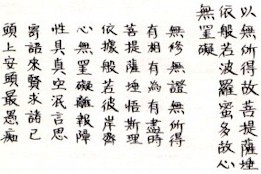 以無所得故菩提薩埵
依般若波羅蜜多故心
無罣礙
無修無證無所得
有相有為有盡時
菩提薩埵悟斯理
依據般若彼岸齊
心無罣礙離報障
性具真空泯言思
寄語來賢求諸己
頭上安頭最愚痴